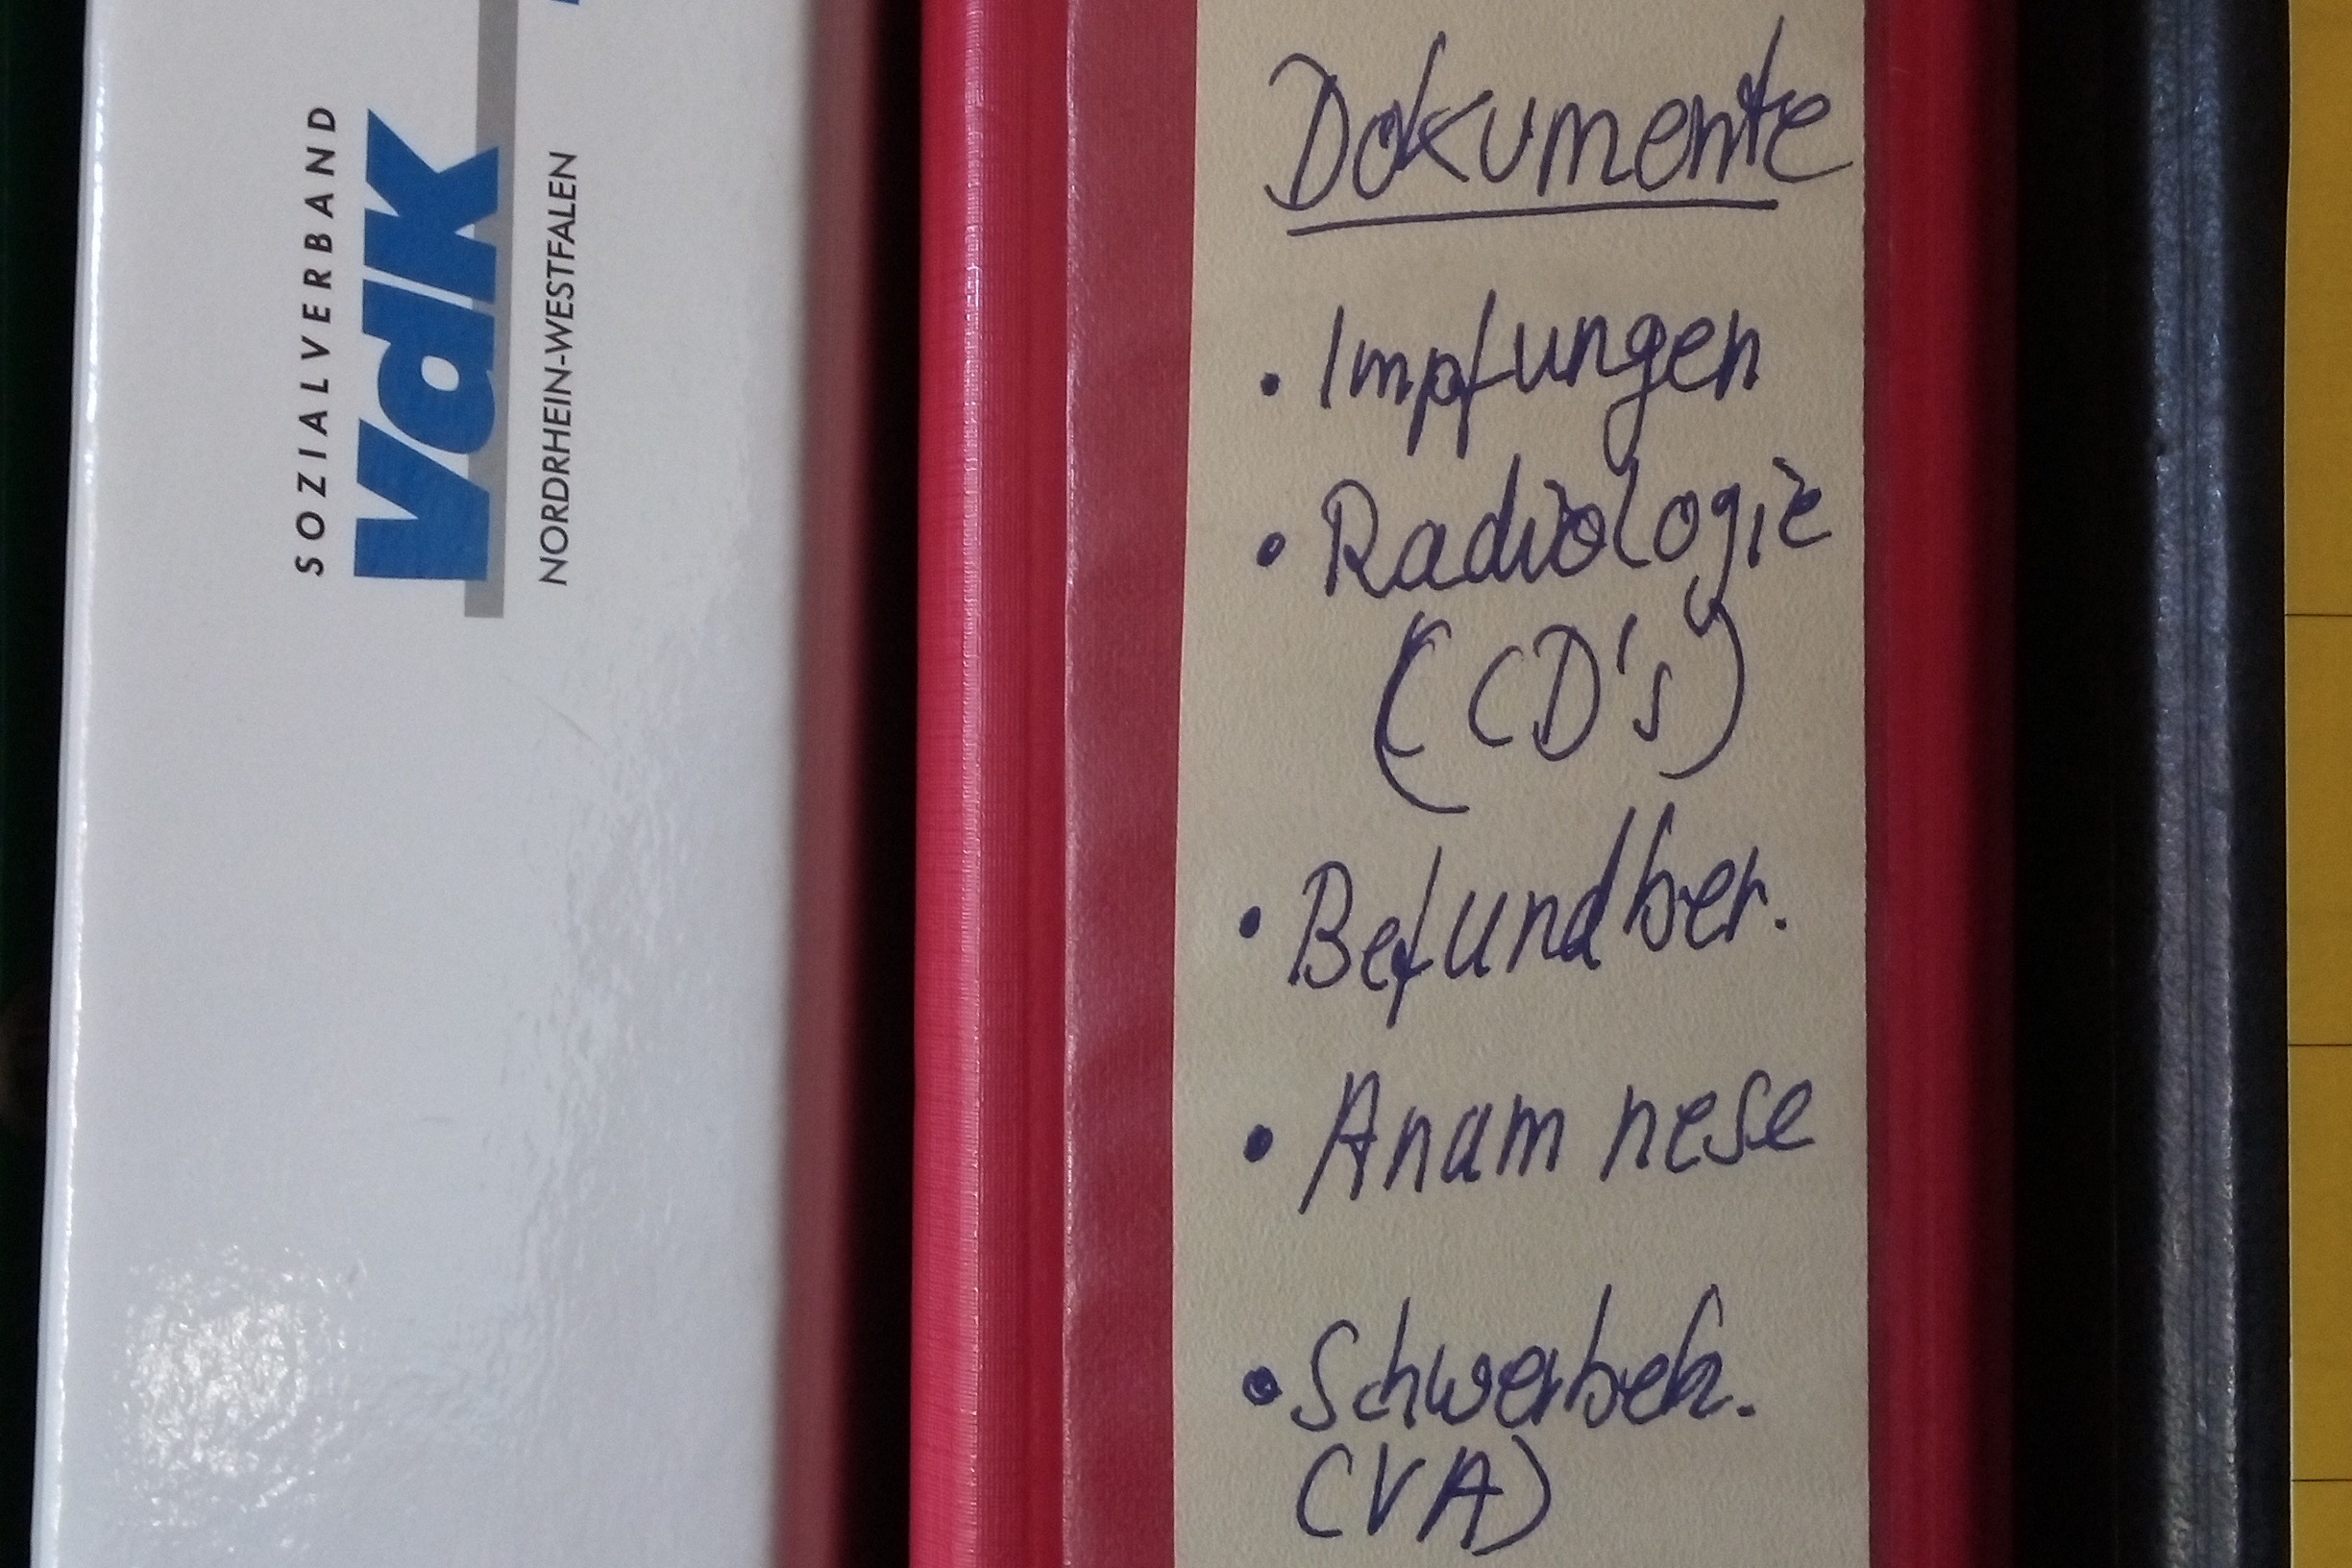 SOZIALVERBAND
VdK
NORDRHEIN-WESTFALEN
Dokumente
• Impfungen
• Radiologie
(CD's)
• Befundber.
• Anamnese
• Schwerbeh.
(VA)